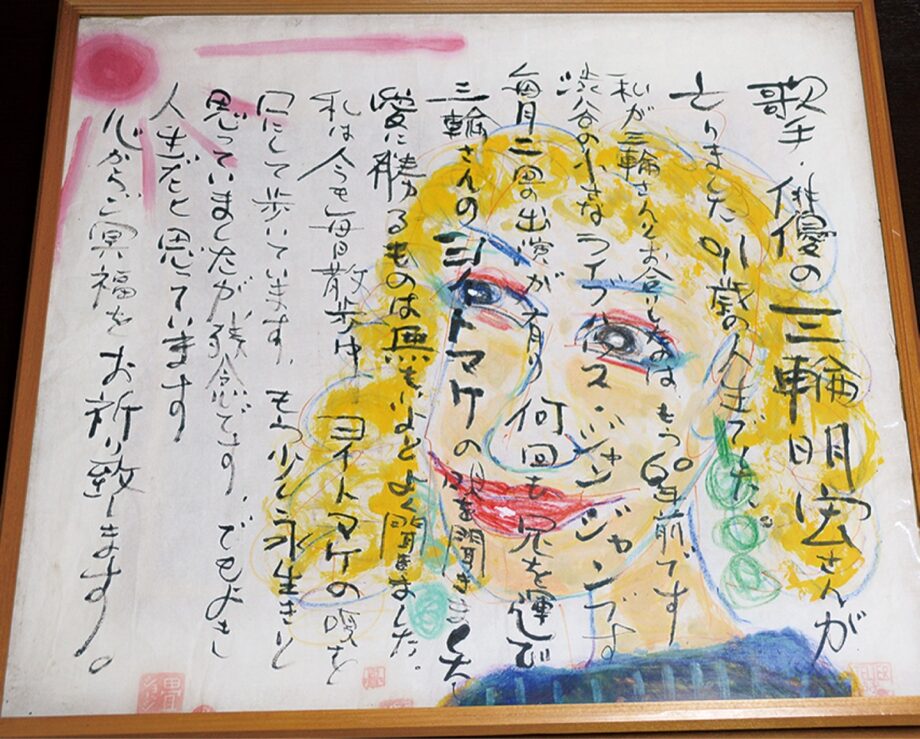 歌手・俳優の三輪明宏さんが
亡りました 91歳の人生でした。
私が三輪さんとお合したのは もう60年前です
渋谷の小さなライブハウス・ジャンジャンです
毎月二回の出演が有り 何回も足を運んで
三輪さんのヨイトマケの唄を聞きました
愛に勝るものは無もいよとよく聞ました。
私は今も毎日散歩中 ヨイトマケの唄を
口にして歩いています。もう少し永生きと
思っていましたが残念です。でもよき
人生だと思っています
心からご冥福をお祈り致します。